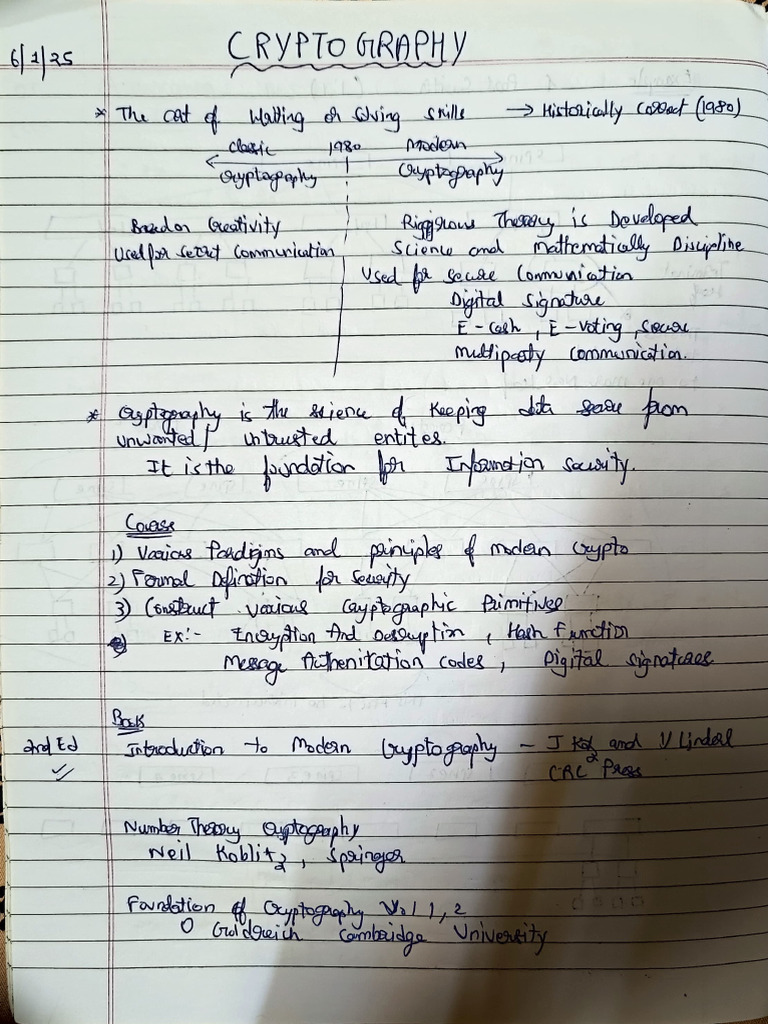 6/1/25
CRYPTOGRAPHY
* The art of Writing or Solving skills → Historically correct (1980)
Classic 1980 Modern
Cryptography Cryptography
Based on Creativity
Used for secret Communication
Riggirous Theory is Developed
Science and Mathematically Discipline
Used for secure Communication
Digital Signature
E-cash, E-voting, secure
Multiparty Communication.
* Cryptography is the science of keeping data secure from
unwanted/ untrusted entites.
It is the foundation for Information security.
1) Various Paradigms and principles of modern Crypto
2) Formal Definition for Security
3) Construct various Cryptographic Primitives
Ex:- Encryption And Decryption, Hash Function
Message Authenitation codes, Digital signatures
Book
2nd Ed
Introduction to Modern Cryptography - J Katz and Y Lindell
CRC Press
Number Theory Cryptography
Neil Koblitz, Springer
Foundation of Cryptography Vol 1, 2
O Goldreich Cambridge University